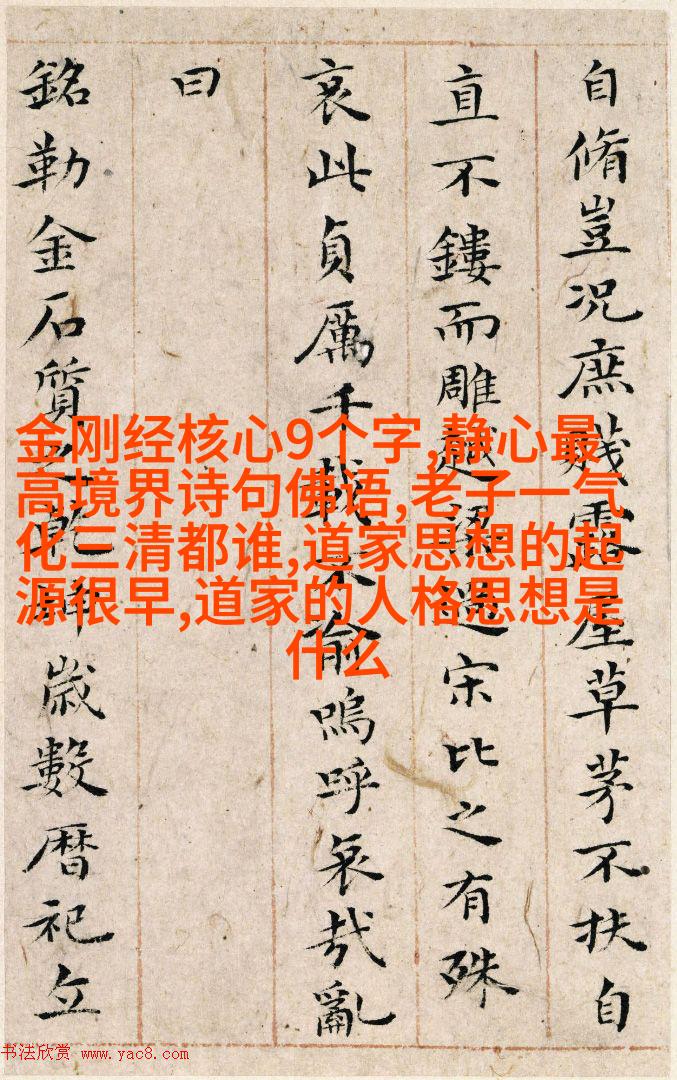 自脩豈況庶賤露屋草茅不扶自
直不鏤而雕越梁過宋比之有殊
哀此貞厲千載不渝嗚呼哀哉亂
曰
銘勒金石質之乾坤歲數暦祀立
金刚经核心9个字,静心最
高境界诗句佛语,老子一气
化三清都谁,道家思想的起
源很早,道家的人格思想是
什么
书法欣赏 www.yac8.com